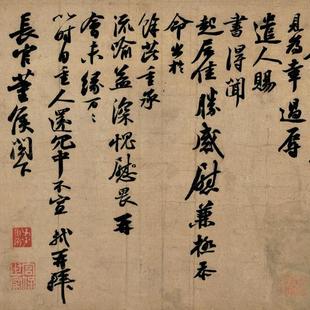 見為幸過辱
遣人賜
書得聞
起居佳勝感慰兼極忝
命出於
餘芘重承
流喻益深愧畏再
會未緣万万
以時自重人還冗中不宣 軾再拜
長官董侯閣下